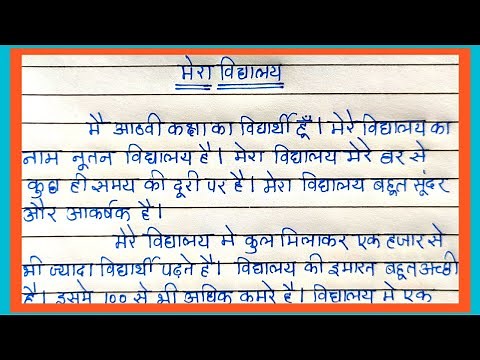 मेरा विद्यालय
मै आठवी कक्षा का विद्यार्थी हूँ। मेरे विद्यालय का
नाम नूतन विद्यालय है। मेरा विद्यालय मेरे घर से
कुछ ही समय की दूरी पर है। मेरा विद्यालय बहूत सूंदर
और आकर्षक है।
मेरे विद्यालय मे कुल मिलाकर एक हजार से
भी ज्यादा विद्यार्थी पढ़ते है। विद्यालय की इमारत बहूत अच्छी
है। इसमे 100 से भी अधिक कमरे है। विद्यालय मे एक